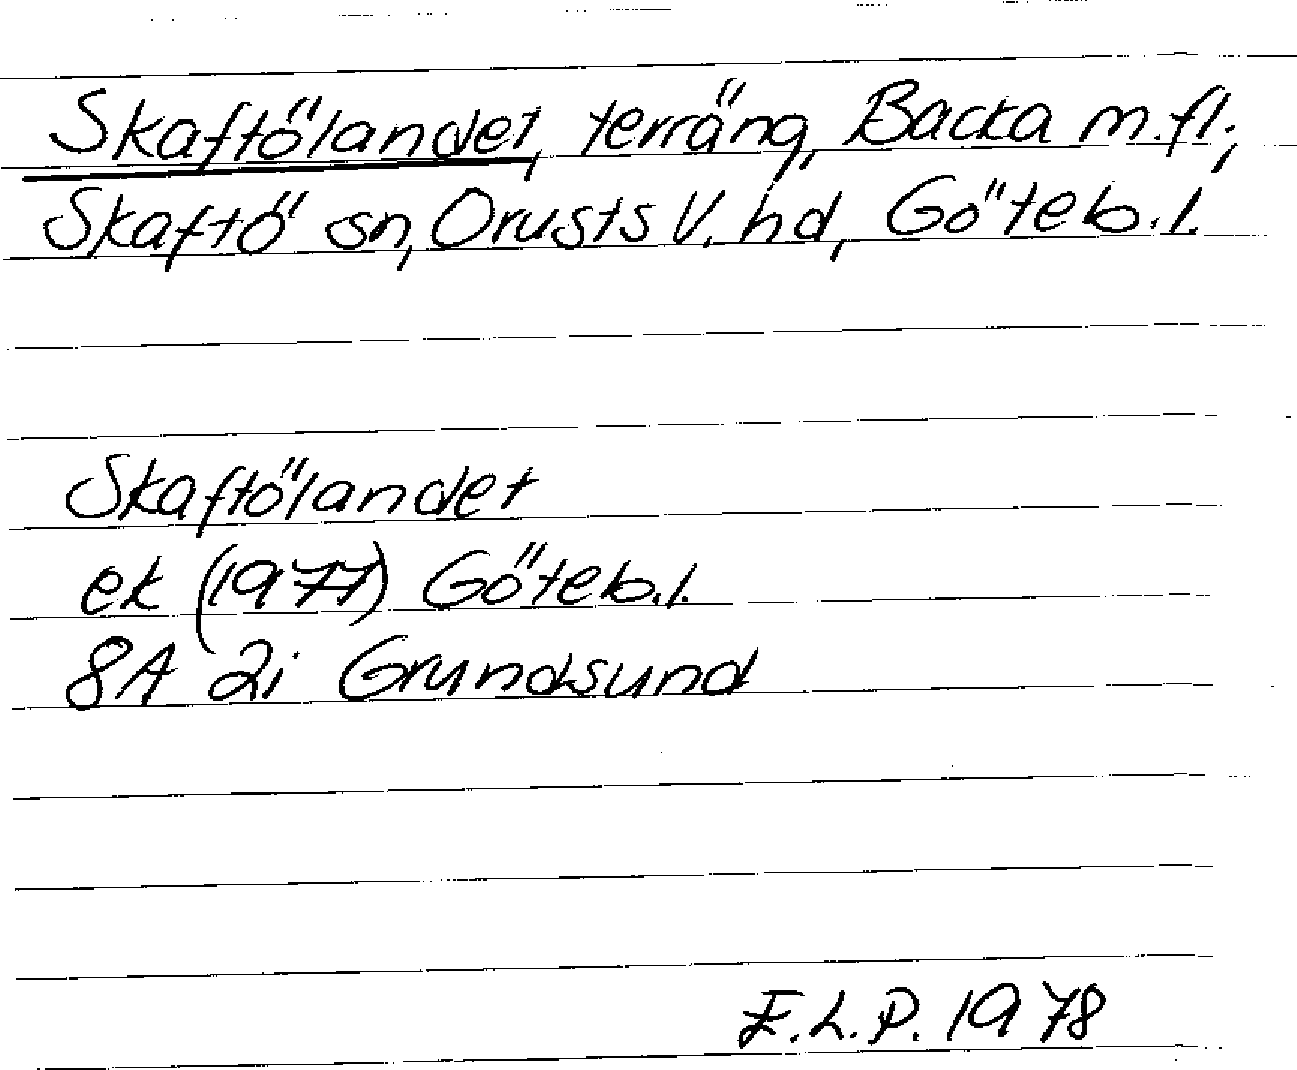 Skaftölandet, terräng, Backa m.fl.,
Skaftö sn, Orusts V. hd, Göteb.l.
Skaftölandet
ek (1977) Göteb.l.
8A 2i Grundsund
E.L.P. 1978